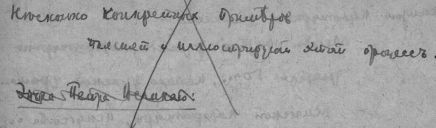 Несколько конкретных примеров
пояснят и иллюстрируют этот процесс.
Эпоха Петра Великаго.